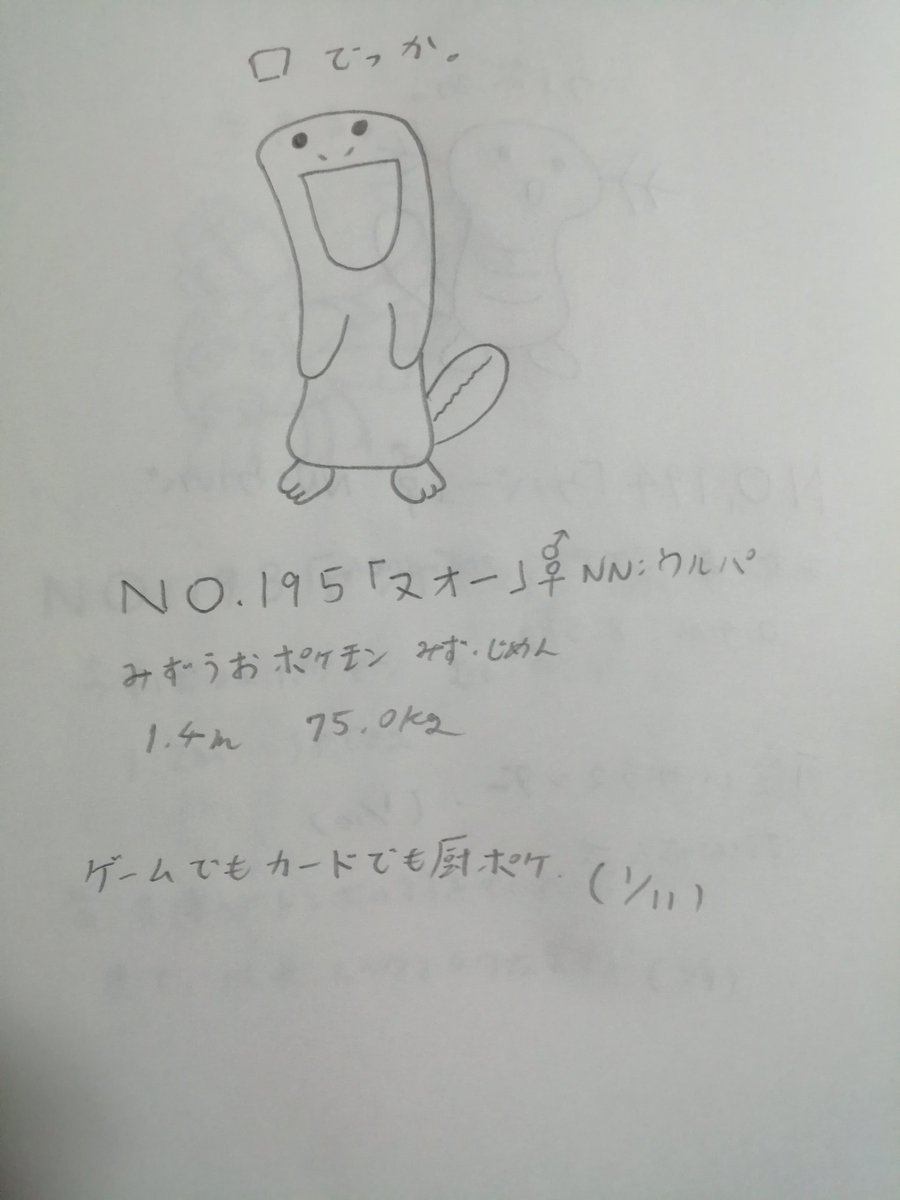 口でっか。
NO.195「ヌオー」♂♀ NN:ウルパ
みずうおポケモン みず・じめん
1.4m 75.0kg
ゲームでもカードでも厨ポケ. (1/11)